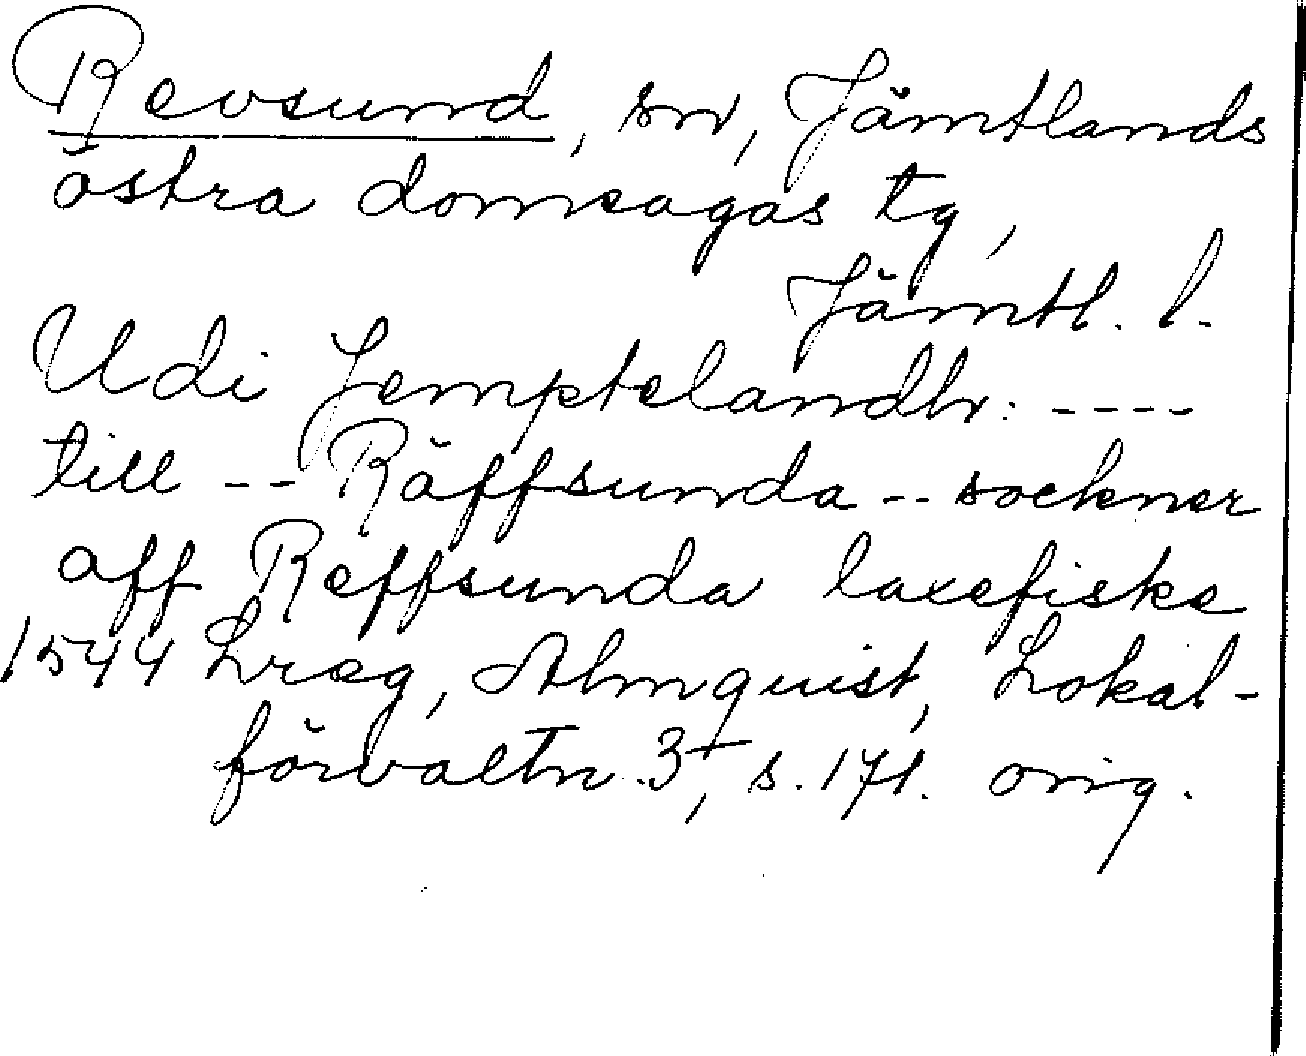 Revsund, sn, Jämtlands
östra domsagas tg,
Jämtl. l.
Udi Jemptelandh: ----
till -- Räffsunda -- sochner
aff Reffsunda laxefiske
1544 Lreg, Almquist, Lokal-
förvaltn. 3, s. 171. orig.